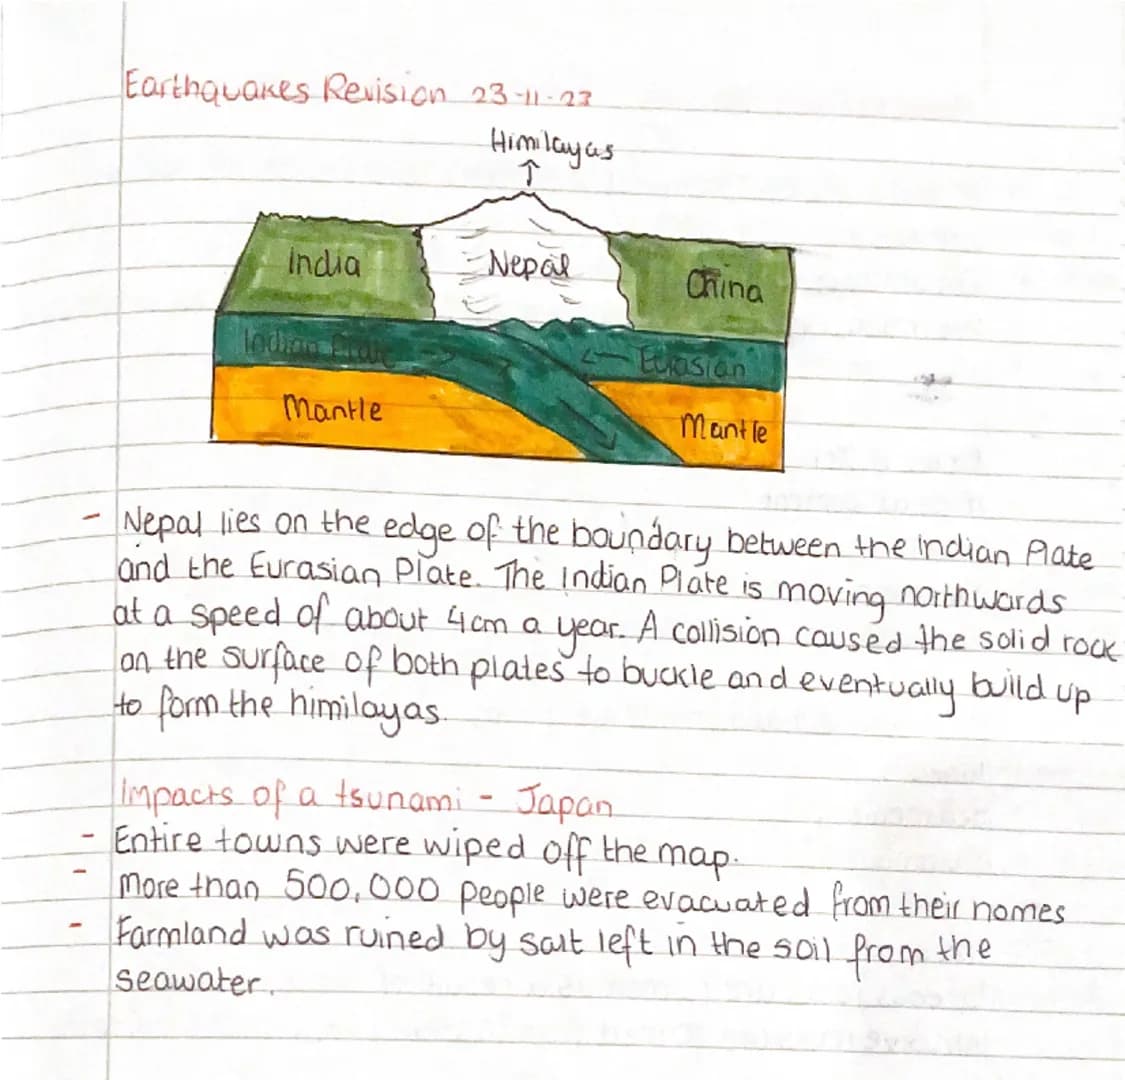 Earthquakes Revision 23-11-23
Himilayas
India
Nepal
China
Indian Plate
Eurasian
Mantle
Mantle
- Nepal lies on the edge of the boundary between the Indian Plate
and the Eurasian Plate. The Indian Plate is moving northwards
at a speed of about 4cm a year. A collision caused the solid rock
on the surface of both plates to buckle and eventually build up
to form the himilayas.
Impacts of a tsunami - Japan
- Entire towns were wiped off the map.
- More than 500,000 people were evacuated from their homes
- Farmland was ruined by salt left in the soil from the
seawater.